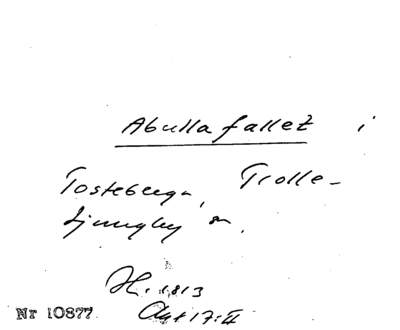 Abulla fallet i
Tosteberga, Trolle-
Ljungby sn.
H. 1813
Nr 10877